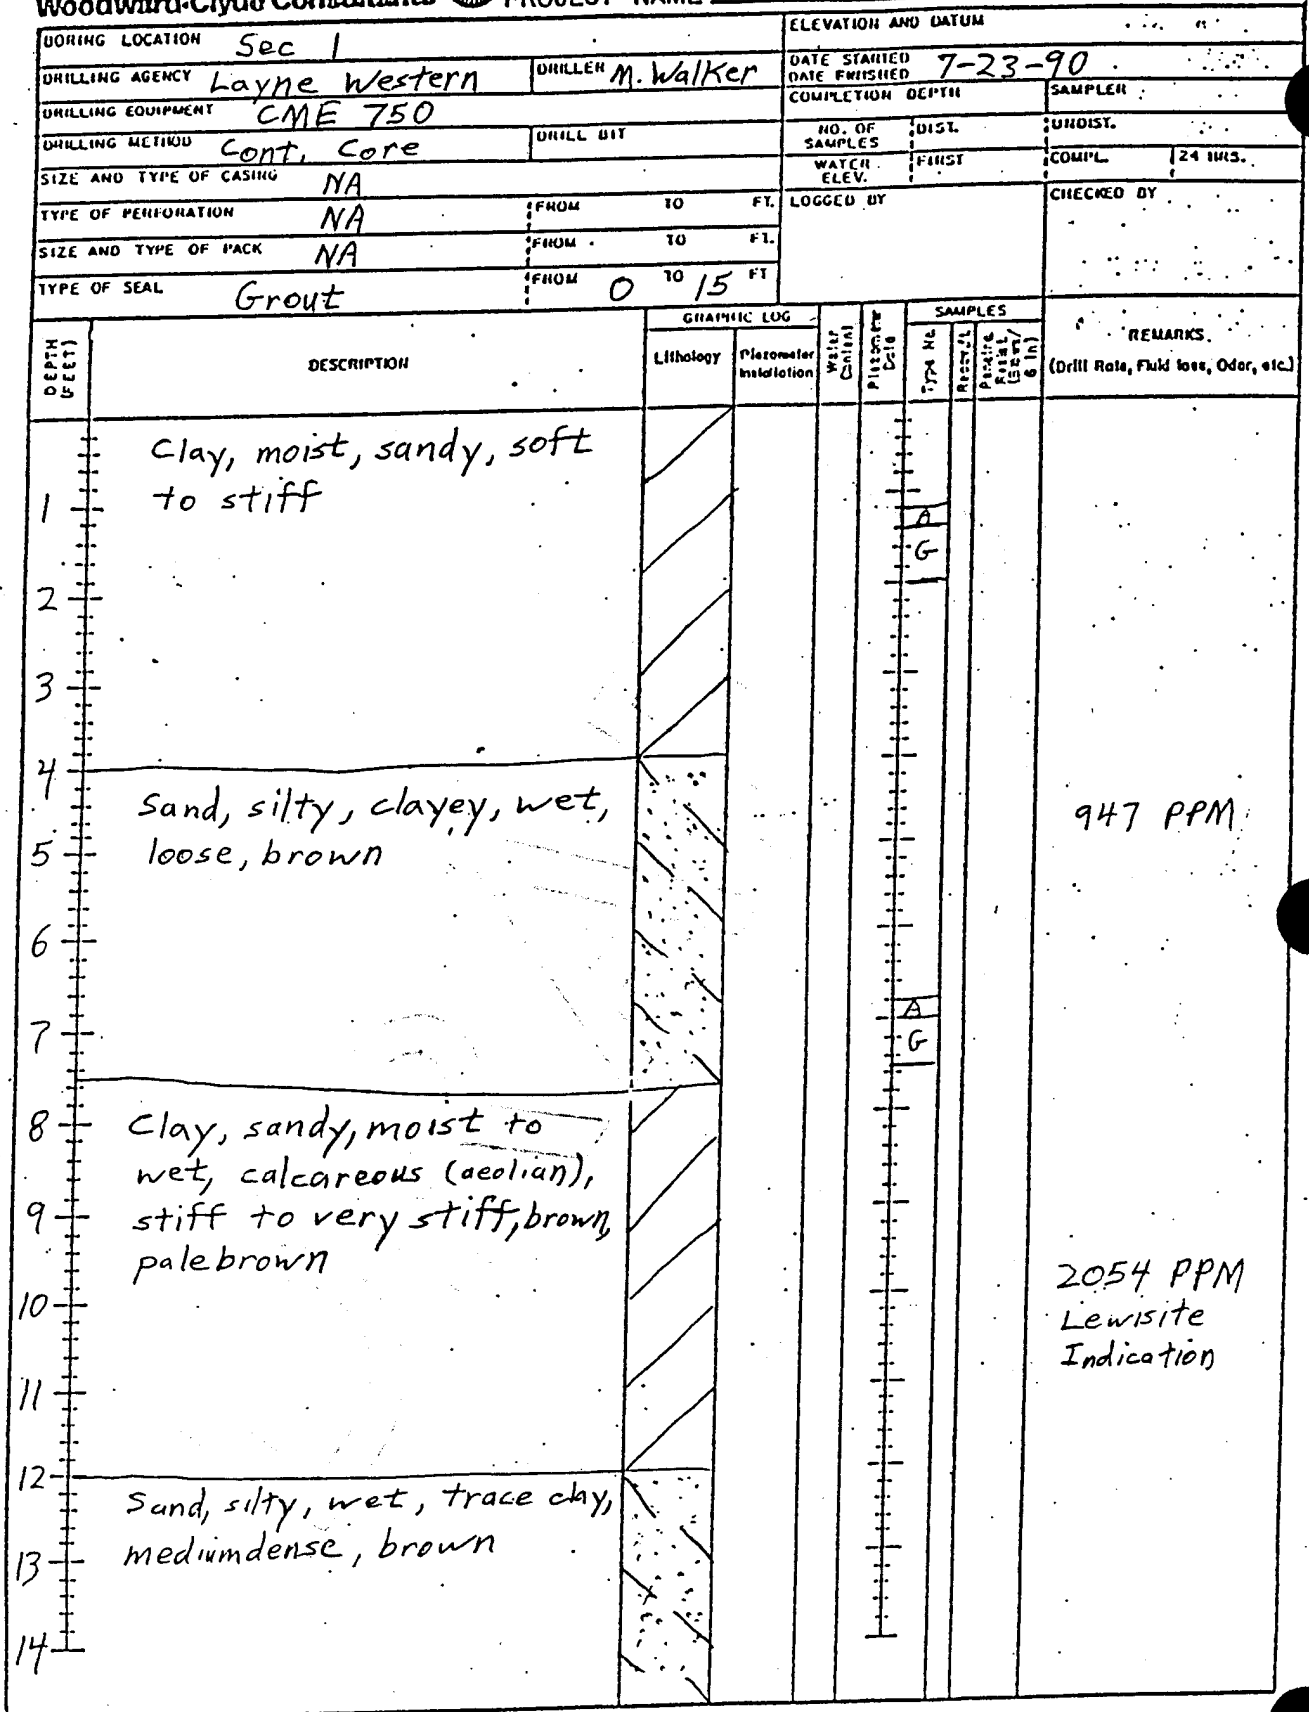 Woodward-Clyde Consultants PROJECT NAME
BORING LOCATION Sec 1
ELEVATION AND DATUM
DRILLING AGENCY Layne Western
DRILLER M. Walker
DATE STARTED
DATE FINISHED 7-23-90
DRILLING EQUIPMENT CME 750
COMPLETION DEPTH
SAMPLER
DRILLING METHOD Cont. Core
DRILL BIT
NO. OF SAMPLES
DIST.
UNDIST.
SIZE AND TYPE OF CASING NA
WATER ELEV.
FIRST
COMPL.
24 HRS.
TYPE OF PERFORATION NA
FROM TO FT.
LOGGED BY
CHECKED BY
SIZE AND TYPE OF PACK NA
FROM TO FT.
TYPE OF SEAL Grout
FROM 0 TO 15 FT
DEPTH (FEET)
DESCRIPTION
GRAPHIC LOG
Lithology
Piezometer Installation
Water Content
SAMPLES
Type No.
REMARKS.
(Drill Rate, Fluid loss, Odor, etc.)
Clay, moist, sandy, soft
to stiff
1
A
G
2
3
4
Sand, silty, clayey, wet,
loose, brown
947 PPM
5
6
A
7
G
8
Clay, sandy, moist to
wet, calcareous (aeolian),
9
stiff to very stiff, brown,
pale brown
2054 PPM
10
Lewisite
Indication
11
12
Sand, silty, wet, trace clay,
medium dense, brown
13
14